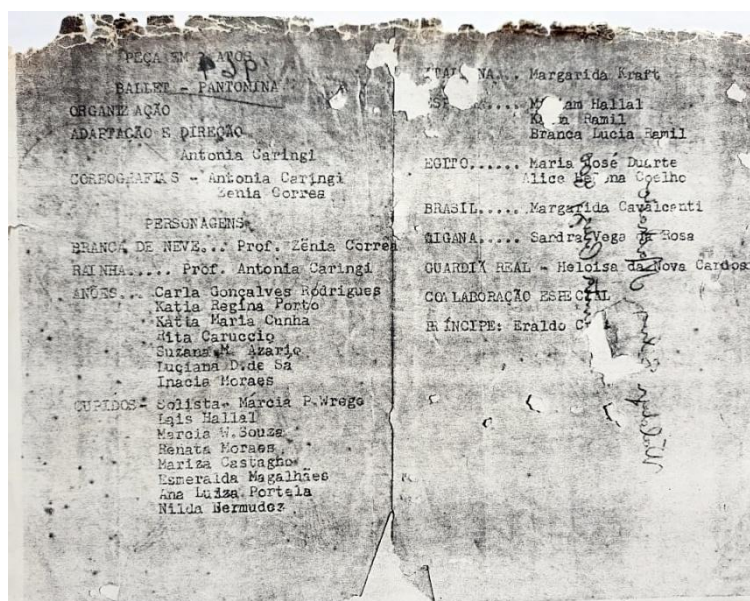 PEÇA EM ATOS
BALLET - PANTOMINA
ORGANIZAÇÃO
ADAPTAÇÃO E DIREÇÃO
Antonia Caringi
COREOGRAFIAS - Antonia Caringi
Zenia Correa
PERSONAGENS
BRANCA DE NEVE... Prof. Zênia Correa
RAINHA..... Prof. Antonia Caringi
ANÕES... Carla Gonçalves Rodrigues
Katia Regina Porto
Kátia Maria Cunha
Rita Caruccio
Suzana M. Azario
Luciana D.de Sa
Inacia Moraes
CUPIDOS- Solista- Marcia P.Wrege
Lais Hallal
Marcia W.Souza
Renata Moraes
Mariza Castagno
Esmeralda Magalhães
Ana Luiza Portela
Nilda Bermudez
Margarida Kraft
Hallal
Ramil
Branca Lucia Ramil
EGITO...... Maria José Duarte
Alice Coelho
BRASIL..... Margarida Cavalcanti
CIGANA..... Sandra Vega da Rosa
GUARDIÃ REAL - Heloisa da Nova Cardoso
COLABORAÇÃO ESPECIAL
PRÍNCIPE: Eraldo